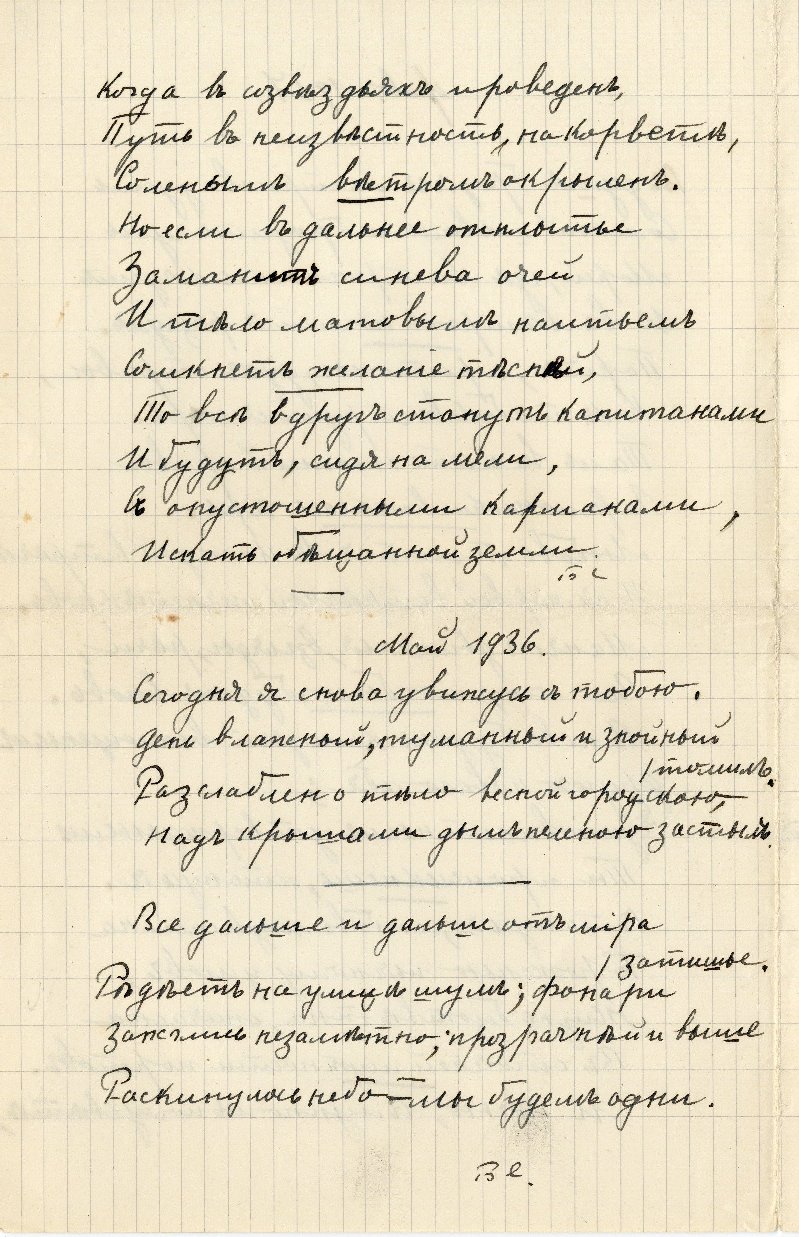 Когда въ созвѣздьяхъ проведенъ,
Путь въ неизвѣстность, на корветѣ,
Соленымъ вѣтромъ окрыленъ.
Но если въ дальнее отплытье
Заманитъ синева очей
И тѣло матовымъ наитьемъ
Сомкнетъ желаніе тѣснѣй,
То всѣ вдругъ станутъ капитанами
И будутъ, сидя на мели,
Съ опустошенными карманами,
Искать обѣщанной земли.
В Е
Май 1936.
Сегодня я снова увижусь съ тобою.
День влажный, туманный и знойный
/ томилъ.
Разслаблено тѣло весной городскою,
Надъ крышами дымъ пеленою застылъ.
Все дальше и дальше отъ міра
/ затишье.
Рѣдѣетъ на улицѣ шумъ; фонари
Зажглись незамѣтно; прозрачнѣй и выше
Раскинулось небо — мы будемъ одни.
В Е.